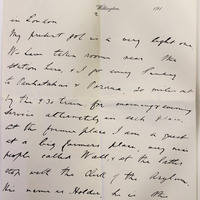 Wellington,
191
2
in London
My present job is a very light one
We have taken rooms near the
station here, & I go every Sunday
to Paekakariki & Porirua, 20 miles out
by the 9.30 train, for morning & evening
service alternatively in each place,
at the former place I am a guest
at a big farmers place, very nice
people called Wall, & at the latter
stop with the Clerk of the Asylum.
His name is Holder, he is the